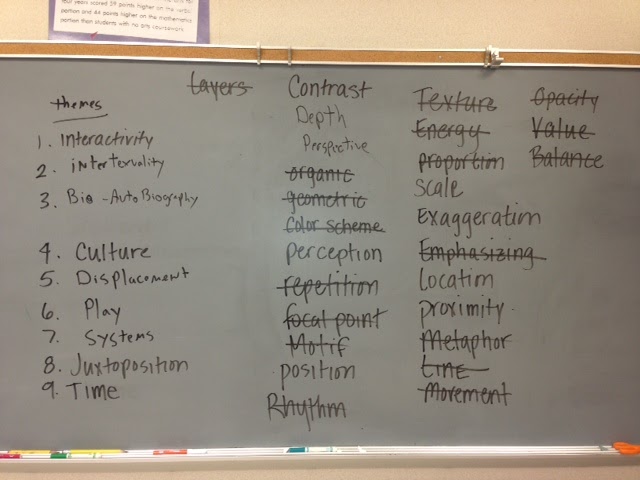 four years scored 59 points higher on the
portion and 44 points higher on the mathematics
portion than students with no arts coursework
themes
1. Interactivity
2. intertexuality
3. Bio -AutoBiography
4. Culture
5. Displacement
6. Play
7. Systems
8. Juxtoposition
9. Time
Layers
Contrast
Depth
Perspective
organic
geometric
Color scheme
perception
repetition
focal point
Motif
position
Rhythm
Texture
Energy
proportion
Scale
Exaggeration
Emphasizing
Location
proximity
Metaphor
LINE
Movement
Opacity
Value
Balance